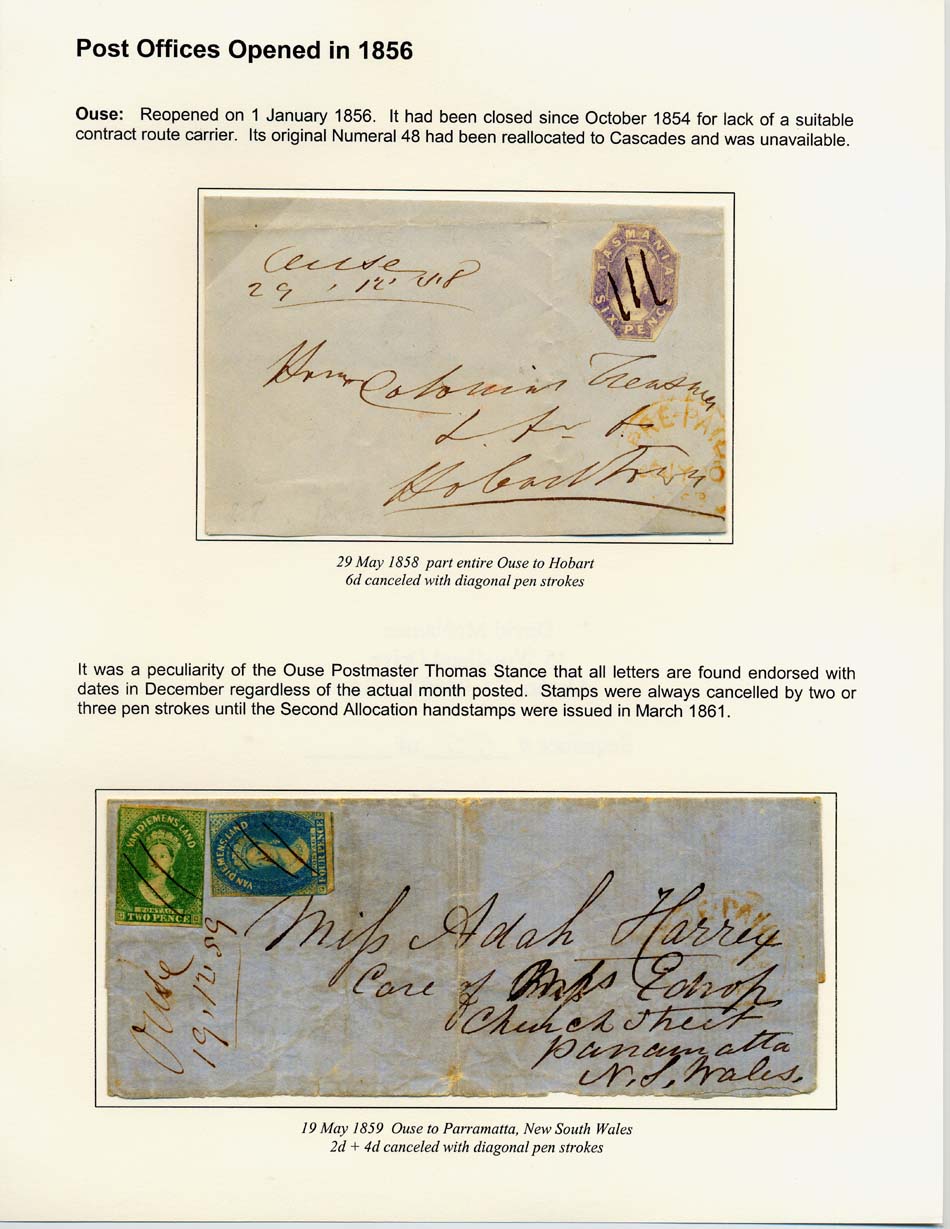 Post Offices Opened in 1856
Ouse: Reopened on 1 January 1856. It had been closed since October 1854 for lack of a suitable
contract route carrier. Its original Numeral 48 had been reallocated to Cascades and was unavailable.
Ouse
29 . 12 . 58
TASMANIA
SIX PENC
Honr Colonial Treasurer
Hobart Town
PRE-PAID
29 May 1858 part entire Ouse to Hobart
6d canceled with diagonal pen strokes
It was a peculiarity of the Ouse Postmaster Thomas Stance that all letters are found endorsed with
dates in December regardless of the actual month posted. Stamps were always cancelled by two or
three pen strokes until the Second Allocation handstamps were issued in March 1861.
VAN DIEMENS LAND
POSTAGE
TWO PENCE
VAN DIEMENS LAND
FOUR PENCE
Ouse
19.12.59
Miss Adah Harrex
Care of Edrop
Church Street
Paramatta
N. S. Wales.
19 May 1859 Ouse to Parramatta, New South Wales
2d + 4d canceled with diagonal pen strokes